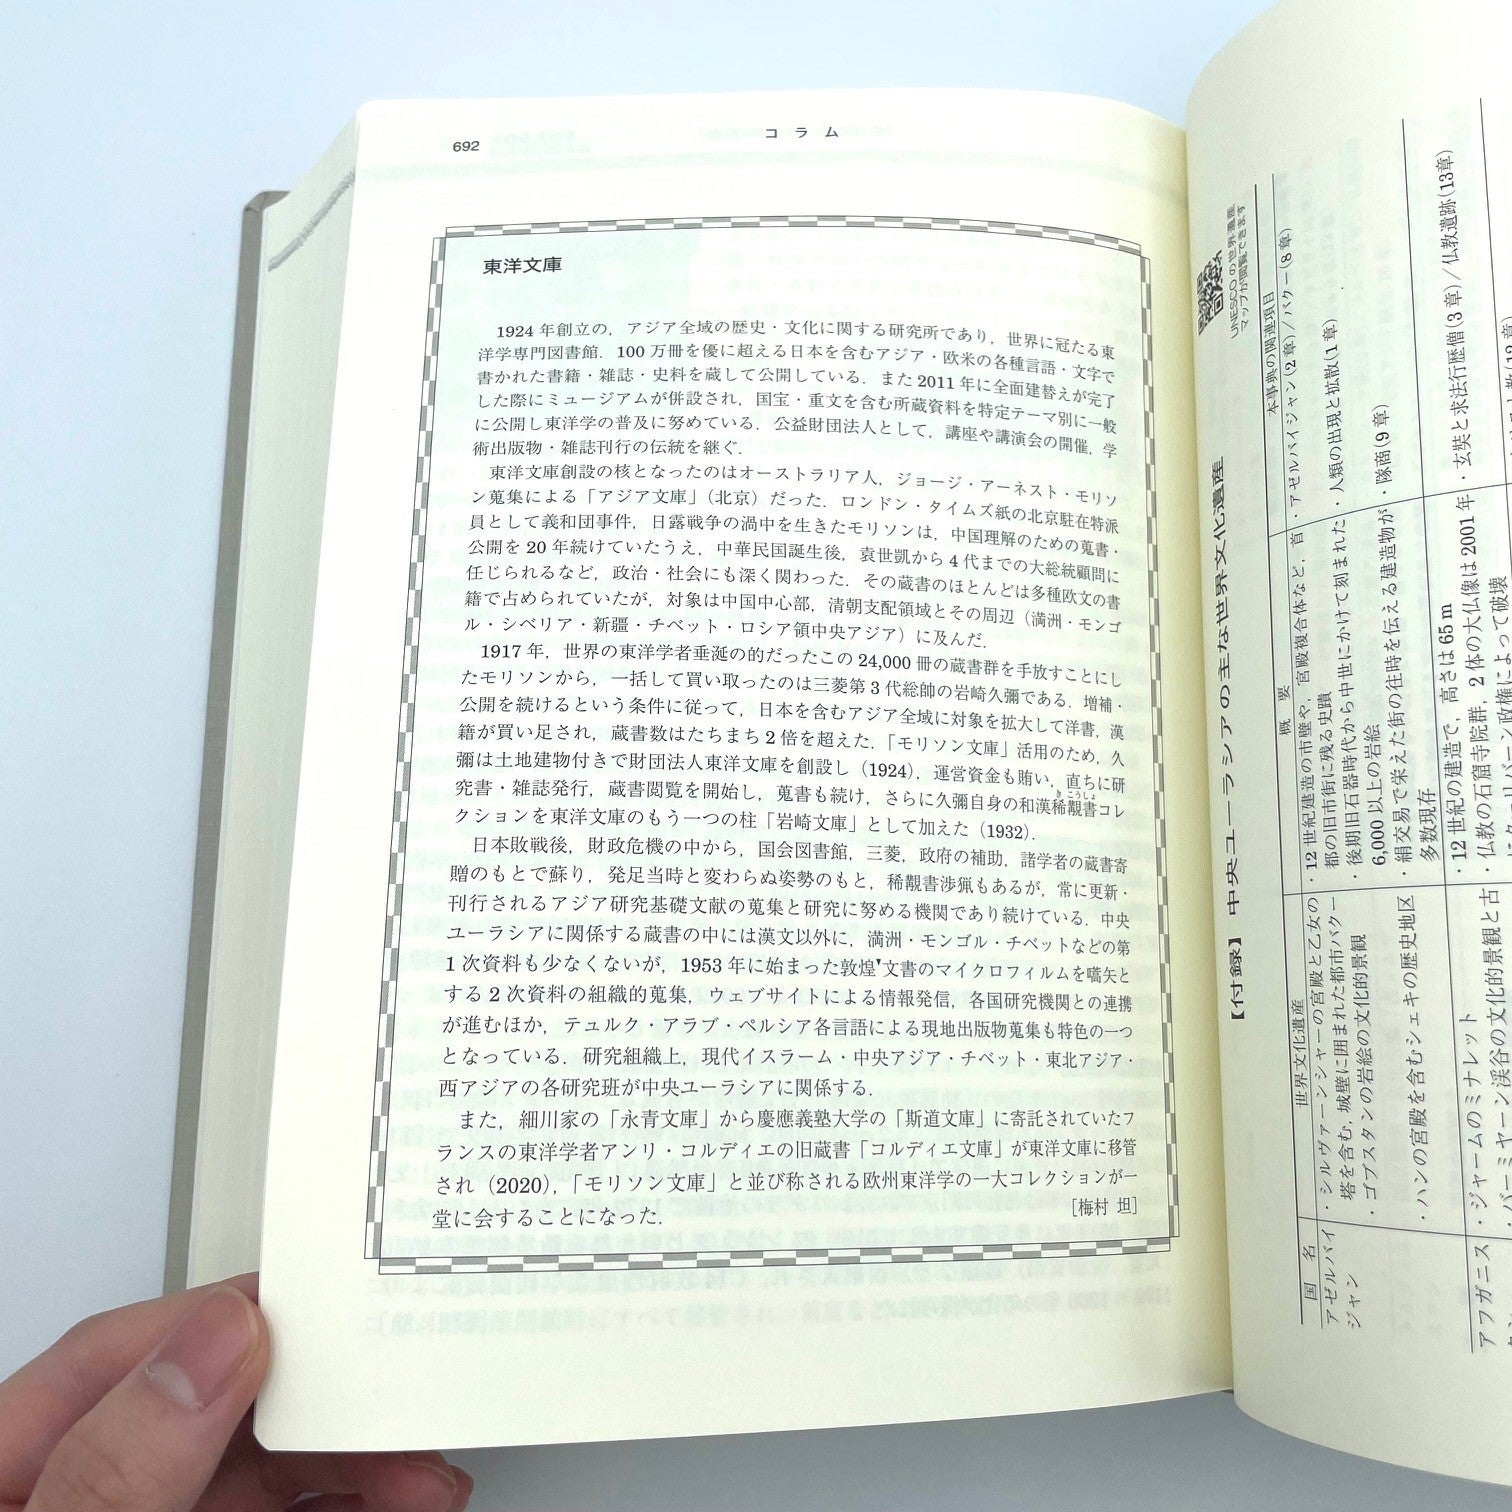 692
コラム
東洋文庫
1924年創立の，アジア全域の歴史・文化に関する研究所であり，世界に冠たる東
洋学専門図書館．100万冊を優に超える日本を含むアジア・欧米の各種言語・文字で
書かれた書籍・雑誌・史料を蔵して公開している．また2011年に全面建替えが完了
した際にミュージアムが併設され，国宝・重文を含む所蔵資料を特定テーマ別に一般
に公開し東洋学の普及に努めている．公益財団法人として，講座や講演会の開催，学
術出版物・雑誌刊行の伝統を継ぐ．
東洋文庫創設の核となったのはオーストラリア人，ジョージ・アーネスト・モリソ
ン蒐集による「アジア文庫」（北京）だった．ロンドン・タイムズ紙の北京駐在特派
員として義和団事件，日露戦争の渦中を生きたモリソンは，中国理解のための蒐書・
公開を20年続けていたうえ，中華民国誕生後，袁世凱から4代までの大総統顧問に
任じられるなど，政治・社会にも深く関わった．その蔵書のほとんどは多種欧文の書
籍で占められていたが，対象は中国中心部，清朝支配領域とその周辺（満洲・モンゴ
ル・シベリア・新疆・チベット・ロシア領中央アジア）に及んだ．
1917年，世界の東洋学者垂涎の的だったこの24,000冊の蔵書群を手放すことにし
たモリソンから，一括して買い取ったのは三菱第3代総帥の岩崎久彌である．増補・
公開を続けるという条件に従って，日本を含むアジア全域に対象を拡大して洋書，漢
籍が買い足され，蔵書数はたちまち2倍を超えた．「モリソン文庫」活用のため，久
彌は土地建物付きで財団法人東洋文庫を創設し（1924），運営資金も賄い，直ちに研
究書・雑誌発行，蔵書閲覧を開始し，蒐書も続け，さらに久彌自身の和漢稀覯書コレ
きこうしょ
クションを東洋文庫のもう一つの柱「岩崎文庫」として加えた（1932）．
日本敗戦後，財政危機の中から，国会図書館，三菱，政府の補助，諸学者の蔵書寄
贈のもとで蘇り，発足当時と変わらぬ姿勢のもと，稀覯書渉猟もあるが，常に更新・
刊行されるアジア研究基礎文献の蒐集と研究に努める機関であり続けている．中央
ユーラシアに関係する蔵書の中には漢文以外に，満洲・モンゴル・チベットなどの第
1次資料も少なくないが，1953年に始まった敦煌▼文書のマイクロフィルムを嚆矢と
する2次資料の組織的蒐集，ウェブサイトによる情報発信，各国研究機関との連携
が進むほか，テュルク・アラブ・ペルシア各言語による現地出版物蒐集も特色の一つ
となっている．研究組織上，現代イスラーム・中央アジア・チベット・東北アジア・
西アジアの各研究班が中央ユーラシアに関係する．
また，細川家の「永青文庫」から慶應義塾大学の「斯道文庫」に寄託されていたフ
ランスの東洋学者アンリ・コルディエの旧蔵書「コルディエ文庫」が東洋文庫に移管
され（2020），「モリソン文庫」と並び称される欧州東洋学の一大コレクションが一
堂に会することになった．
［梅村 坦］
【付録】 中央ユーラシアの主な世界文化遺産
UNESCOの世界遺産
マップが閲覧できます
国 名
世界文化遺産
概 要
本事典の関連項目
アゼルバイ
ジャン
・シルヴァーンシャーの宮殿と乙女の
塔を含む，城壁に囲まれた都市バクー
・12世紀建造の市壁や，宮殿複合体など，首
都の旧市街に残る史蹟
・アゼルバイジャン（2章）／バクー（8章）
・ゴブスタンの岩絵の文化的景観
・後期旧石器時代から中世にかけて刻まれた
6,000以上の岩絵
・人類の出現と拡散（1章）
・ハンの宮殿を含むシェキの歴史地区
・絹交易で栄えた街の往時を伝える建造物が
多数現存
・隊商（9章）
アフガニス
・ジャームのミナレット
・12世紀の建造で，高さは65m
・バーミヤーン渓谷の文化的景観と古
・仏教の石窟寺院群．2体の大仏像は2001年
・玄奘と求法行歴僧（3章）／仏教遺跡（13章）